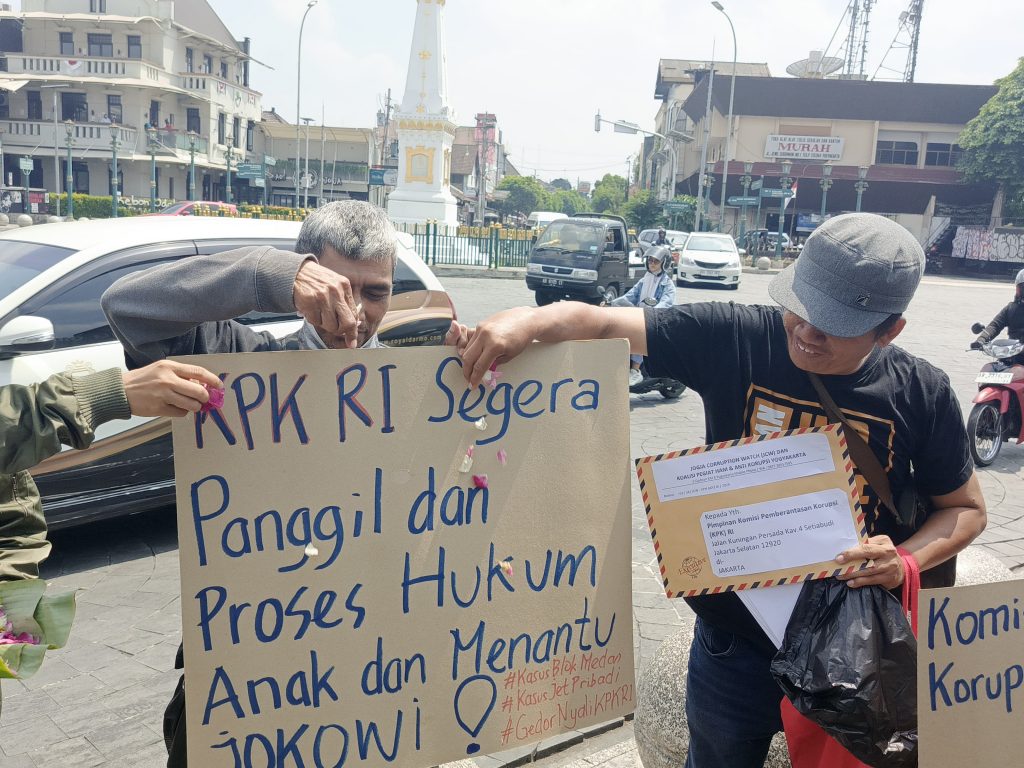 KPK RI Segera
Panggil dan
Proses Hukum
Anak dan Menantu
JOKOWI !
#KasusBlokMedan
#KasusJetPribadi
#GedorNyaliKPKRI
JOGJA CORRUPTION WATCH (JCW) DAN
KOALISI PEGIAT HAM & ANTI KORUPSI YOGYAKARTA
Kepada Yth.
Pimpinan Komisi Pemberantasan Korupsi
(KPK) RI
Jalan Kuningan Persada Kav 4 Setiabudi
Jakarta Selatan 12920
di-
JAKARTA
Komi
Korup
MURAH
royaldarmo.com